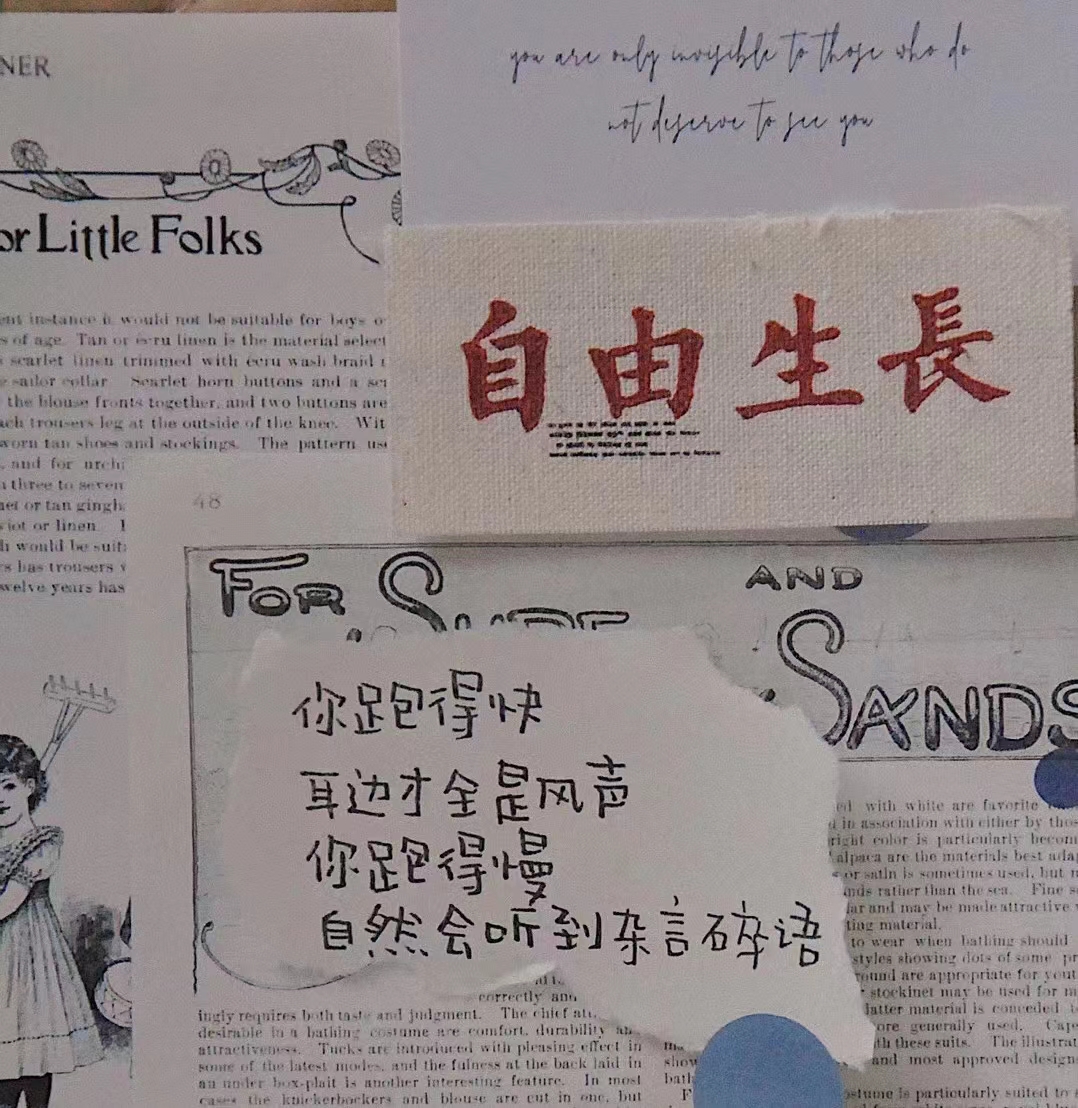 you are only invisible to those who do
not deserve to see you
NER
or Little Folks
自由生長
ent instance it would not be suitable for boys o
s of age. Tan or ecru linen is the material select
scarlet linen trimmed with écru wash braid
sailor collar Scarlet horn buttons and a
the blouse fronts together, and two buttons are
ach trousers leg at the outside of the knee. Wit
worn tan shoes and stockings. The pattern us
and for
three to seven
or tan gingh
or linen.
would be suit
s has trousers
welve years has
48
FOR
AND
SANDS
你跑得快
耳边才全是风声
你跑得慢
自然会听到杂言碎语
ed with white are favorite
in association with either by thos
right color is particularly becom
alpaca are the materials best adap
or satin is sometimes used, but
nds rather than the sea. Fine s
lar and may be made attractive
ting material.
to wear when bathing should
styles showing dots of some
round are appropriate for yout
stockinet may be used for
latter material is conceded
ore generally used. Cape
th these suits. The illustrat
and most approved design
correctly and
ingly requires both taste and judgment. The chief
desirable in a bathing costume are comfort, durability
attractiveness. Tucks are introduced with pleasing effect in
some of the latest modes, and the fulness at the back laid in
an under box-plait is another interesting feature. In most
cases the knickerbockers and blouse are cut in one, but
show
bath
F
ostume is particularly suited to